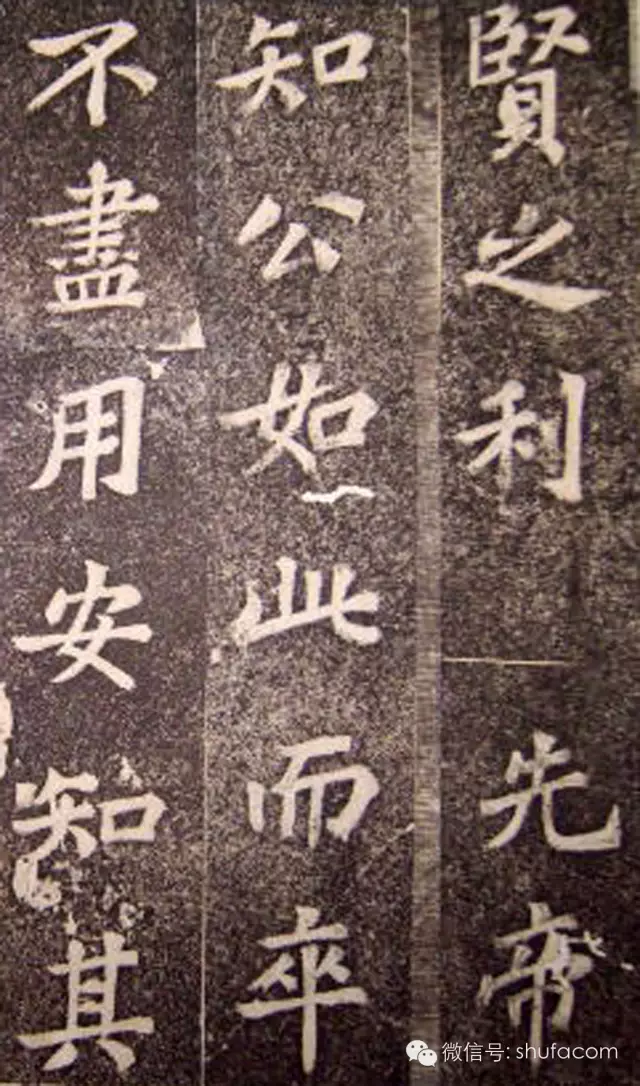 賢之利 先帝
知公如此而卒
不盡用安知其
微信号: shufacom